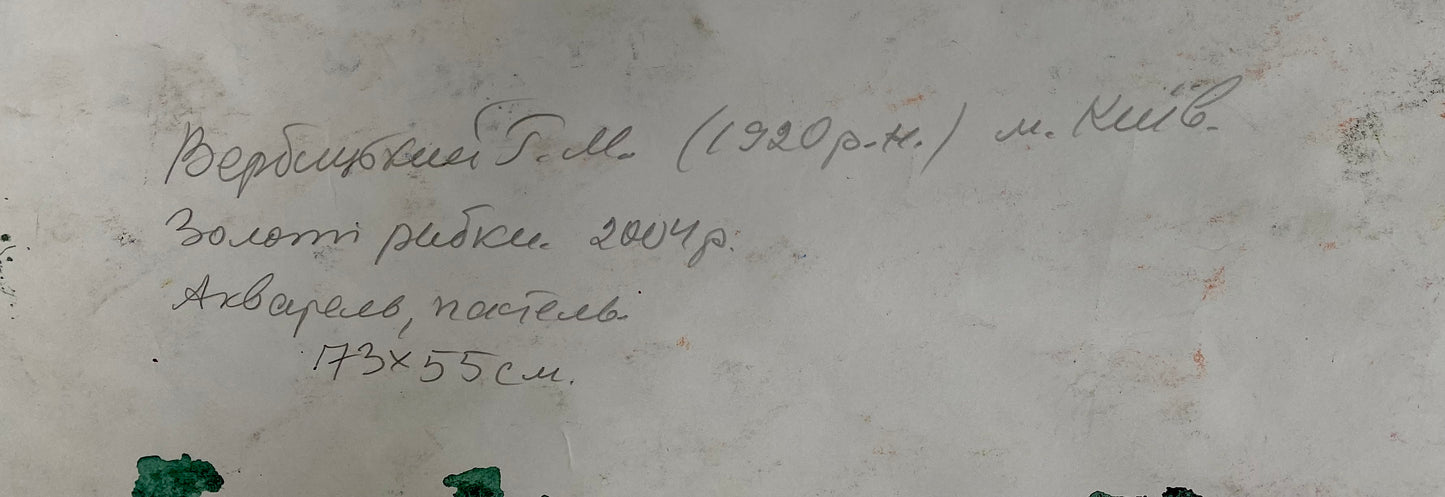 Вербицький Г. М. (1920 р.н.) м. Київ.
Золоті рибки. 2004 р.
Акварель, пастель.
73х55 см.